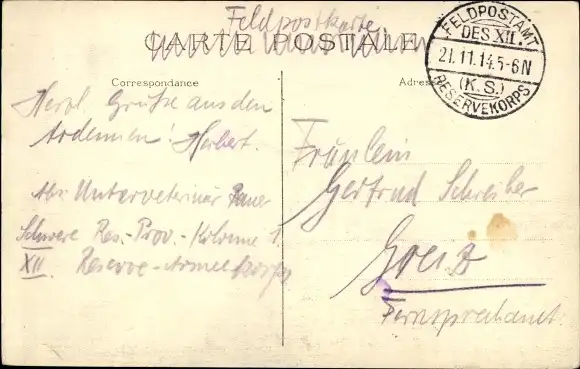 Feldpostkarte
CARTE POSTALE
FELDPOSTAMT
DES XII.
21.11.14.5-6N
(K.S.)
RESERVEKORPS
Correspondance
Adresse
Herzl. Grüße aus den
Ardennen! Herbert.
Abs. Unterveterinär
Schwere Res.-Prov.-Kolonne 1.
XII. Reserve-Armeekorps
Fräulein
Gertrud Schreiber
Greiz
Fernsprechamt